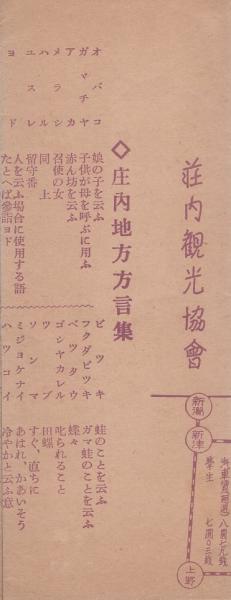 莊内観光協會
新潟
新津
上野
八圓七九錢
學生 七圓〇三錢
◇庄内地方方言集
オバコ 娘の子を云ふ
ガマチヤ 子供が母を呼ぶに用ふ
アカ 赤ん坊を云ふ
メラシ 召使の女
ハル 同上
ユスレ 留守番
ヨド 人を云ふ場合に使用する語
たとへば參詣ヨド
ビツキ 蛙のことを云ふ
フクダビツキ ガマ蛙のことを云ふ
ベツタウ 蝶々
ゴシヤカレル 叱られること
ツブ 田螺
ソンマ すぐ、直ちに
ミジョケナイ あはれ、かあいそう
ハツコイ 冷やかと云ふ意